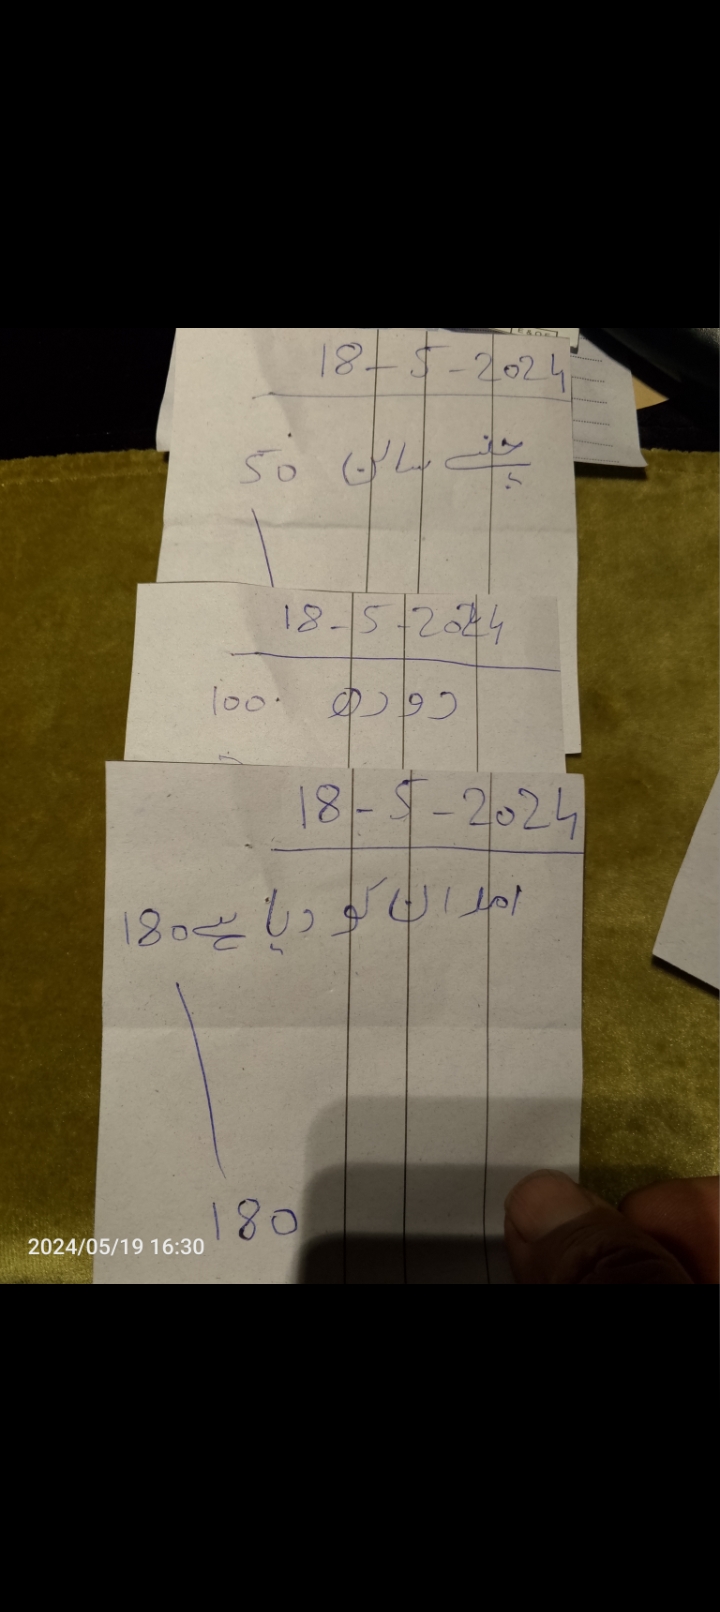 18-5-2024
چنے سالن 50
18-5-2024
دودھ 100
18-5-2024
امدان کو دیا ہے 180
180
2024/05/19 16:30